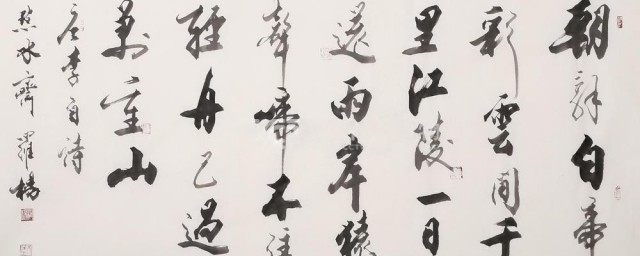 朝辞白帝
彩雲間千
里江陵一日
還兩岸猿
聲啼不住
輕舟已過
萬重山
唐李白詩
水齋羅楊